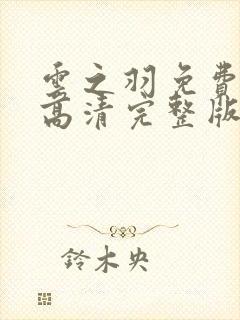 雲之羽免費
高清完整版
鈴木央